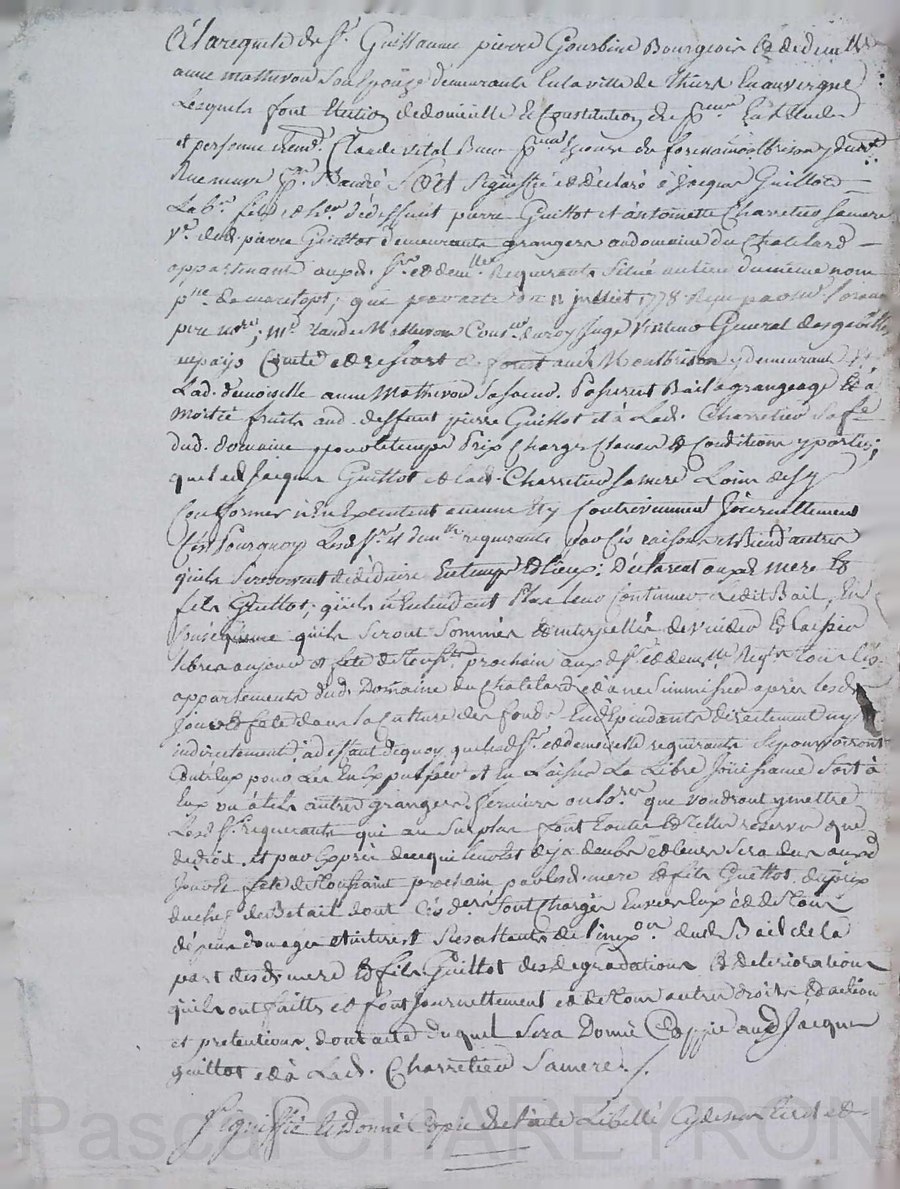 A la requete de Sr. Guillaume pierre Gourbine Bourgeois Et de demlle
anne mathevon Son Epouze demeurants En la ville de thiers En auvergne
Lesquels font Election de domicille Et Constitution de En l'Etude
et personne de me. Claude vital
Rue neuve St. andré Soit Signiffié et declaré a Jacques Guillot
Labr. fils et her. de deffunt pierre Guillot et d'antoinette Charretier Sa mere
Ve. dud. pierre Guillot demeurants grangers au domaine du Chatelard
appartenant auxd. Sr. et demlle. Requerants Situé au lieu du meme nom
psse. de maretopt; que par acte du 11 juillet 1778 Reçu par me.
nore; me. Claude Mathevon Consr. du roy Juge Visiteur General des gabelles
au pays Comté et ressort de forest aud. Montbrison y demeurant Et
Lad. demoiselle anne Mathevon Sa soeur. Passerent Bail a grangeage Et a
moitié fruits aud. deffunt pierre Guillot et à Lad. Charretier Sa fe
dud. domaine pour le temps Prix Charges Clauses Et Conditions y portés;
que led. Jacques Guillot et lad. Charretier Sa mere Loin de S'y
Conformer n'En Executent aucune Et y Contreviennent Journellement
C'est Pourquoy Lesd. Sr. et demlle. requerants par Ces raisons et Bien d'autres
qu'ils Se reservent de deduire En temps Et lieux; declarent auxd. mere Et
fils Guillot; qu'ils n'Entendent Plus leur Continuer Ledit Bail, En
Consequence qu'ils Seront Sommés Et interpellés de vuider Et laisser
libres au jour et fete de Toussts. prochain auxd. Sr. et demlle Reqts. Tous les
appartements dud. Domaine du Chatelard et a ne S'immisser après lesd.
Jour Et fete dans la Culture des fonds En dependants directement ny
indirectement, a deffaut de quoy que lesd. Sr. et demoiselle requerants Se pourvoiront
Contr'Eux pour Les En Expulser et En Laisser La Libre Joüissance Soit à
Eux ou à tels autres grangers fermiers ou lores. que voudront y mettre
Lesd. Srs. requerants qui au Surplus font Toutes Et Telles reserves que
de droit, et par Exprès de ce qui leur Est deja deub et leur Sera deu aud.
Jour Et fete de Toussaint prochain par lesd. mere Et fils Guillot, du prix
du chef. de Betail dont Ces ders. Sont Chargés Envers Eux et de Tous
depens domages et interest Resultants de l'inexon. dud. Bail de la
part desd. mere Et fils Guillot des degradations Et deteriorations
qu'ils ont faittes et font Journellement et de Tous autres droits Et actions
et pretentions. dont acte duquel Sera Donné Coppie aud. Jacques
guillot et à Lad. Charretier Sa mere. /.
Signiffié Et Donné Copie de l'acte Libellé Cy dessus
Pascal CHAREYRON